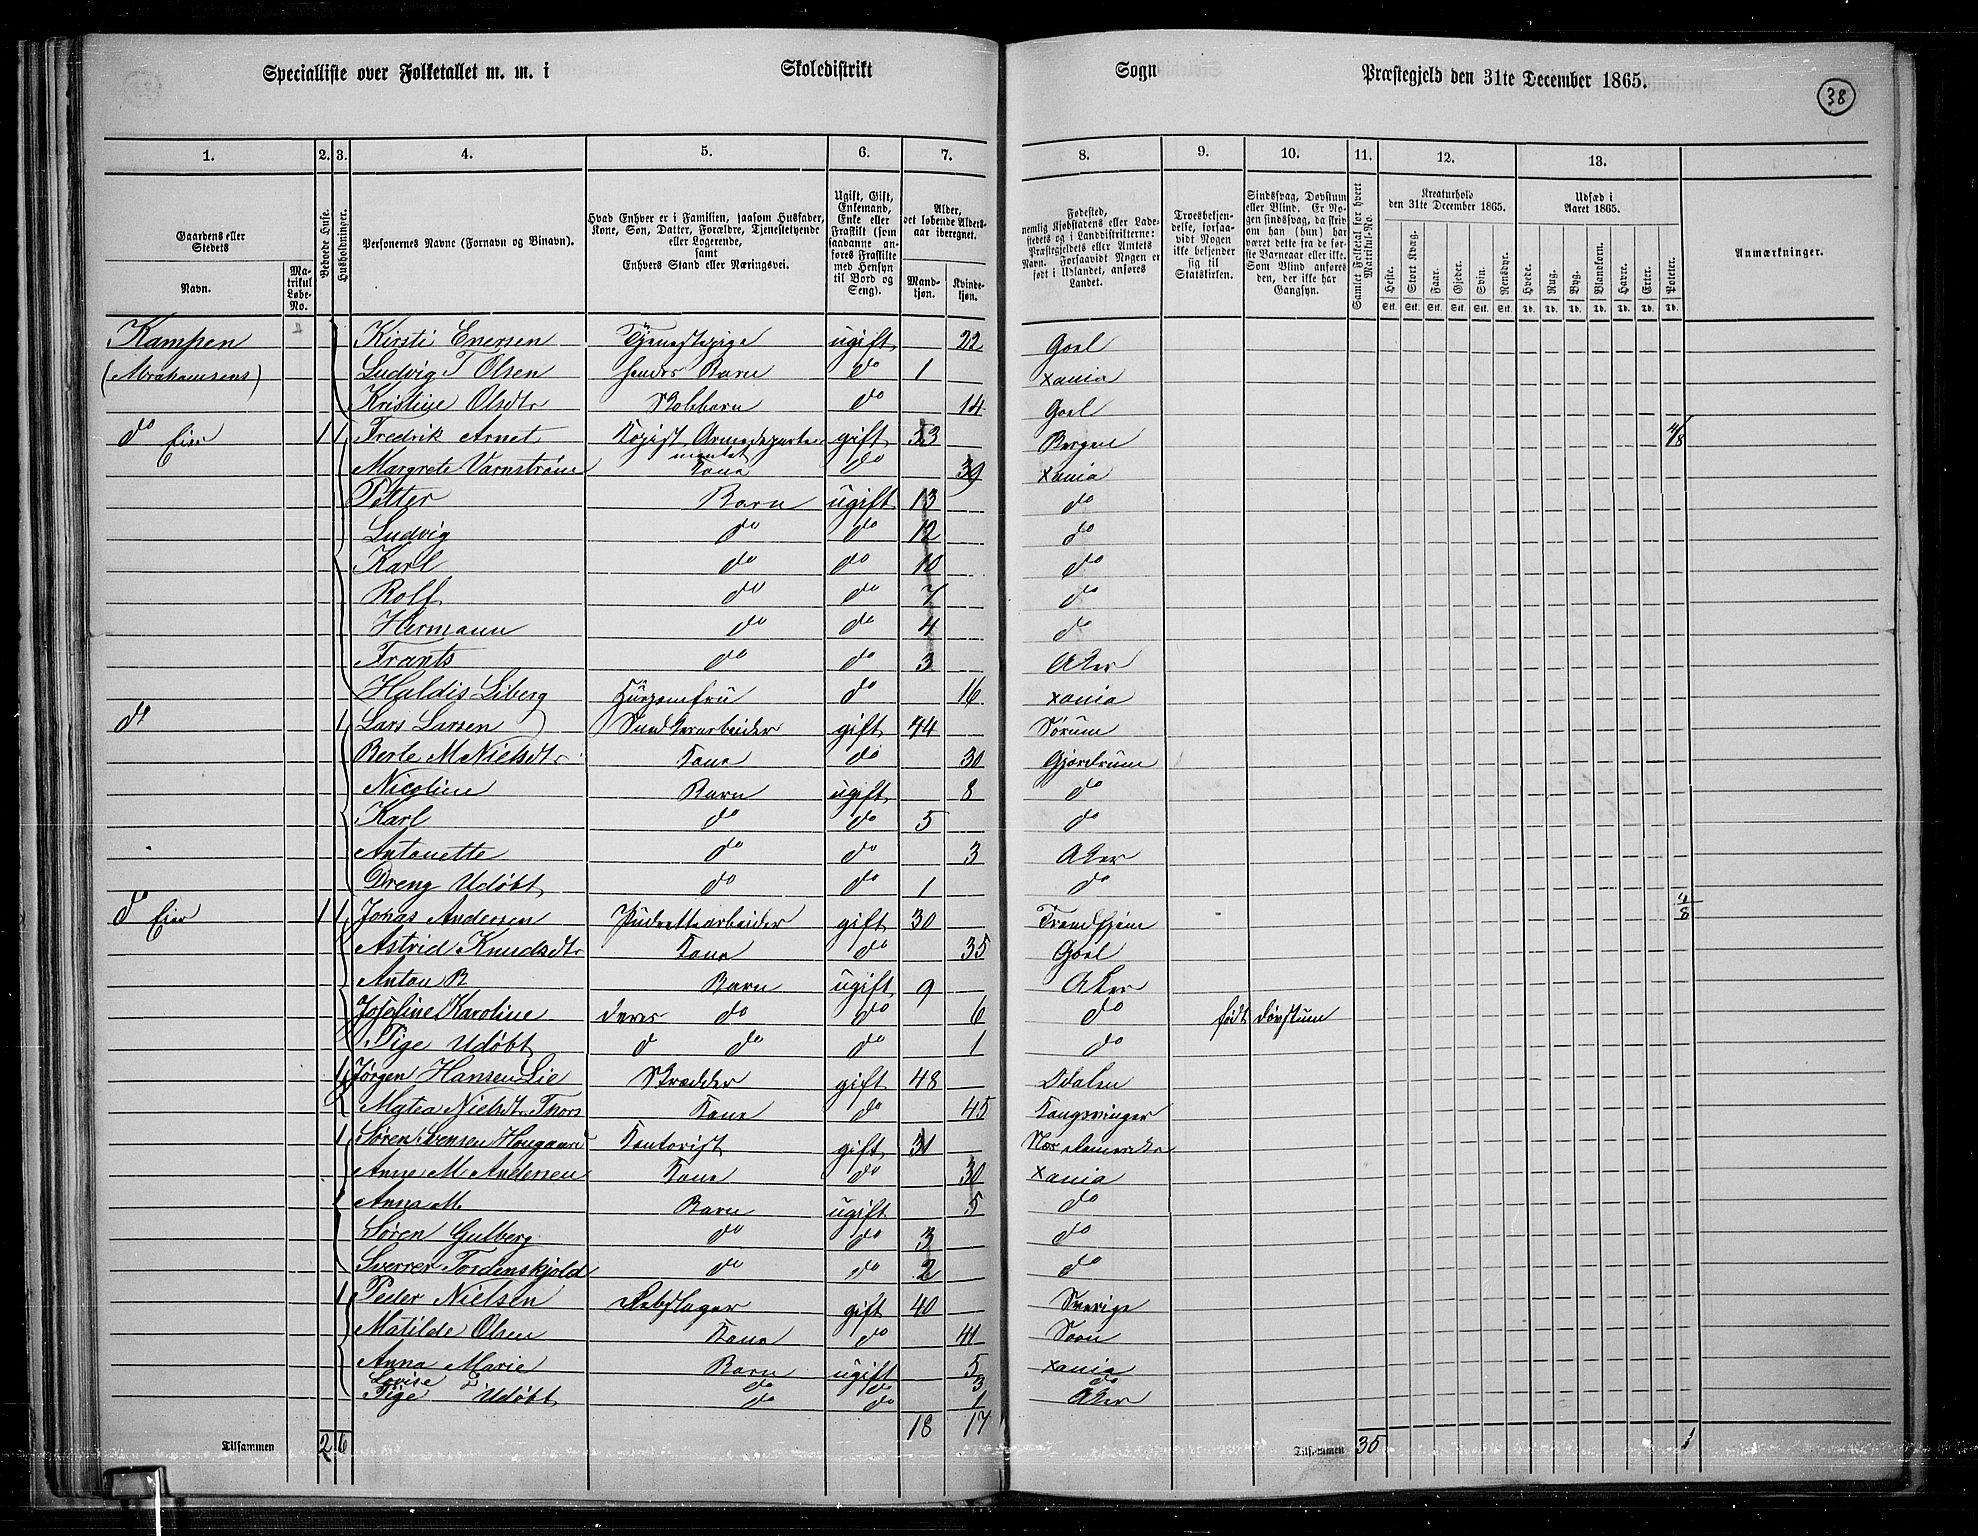 Specialliste over Folketallet m. m. i Skoledistrikt Sogn Præstegjeld den 31te December 1865.
38
1. 2. 3. 4. 5. 6. 7. 8. 9. 10. 11. 12. 13.
Gaardens eller Stedets
Navn.
Matrikul Løbe-No.
Beboede Huse.
Husholdninger.
Personernes Navne (Fornavn og Binavn).
Hvad Enhver er i Familien, saasom Husfader, Kone, Søn, Datter, Forældre, Tjenestetyende eller Logerende, samt Enhvers Stand eller Næringsvei.
Ugift, Gift, Enkemand, Enke eller Fraskilt (som saadanne anføres Fraskilte med Hensyn til Bord og Seng).
Alder, det løbende Alders-aar iberegnet.
Mandkjøn.
Kvindekjøn.
Fødested, nemlig Kjøbstadens eller Ladestedets og i Landdistrikterne: Præstegjeldets eller Amtets Navn. Forsaavidt Nogen er født i Udlandet, anføres Landet.
Troesbekjendelse, forsaavidt Nogen ikke bekjender sig til Statskirken.
Sindssvag, Døvstum eller Blind. Er Nogen sindssvag, da skriv om han (hun) har været dette fra de første Barneaar eller ikke. Som Blind anføres den, der ikke har Gangsyn.
Samlet Folketal for hvert Matrikul-No.
Kreaturhold den 31te December 1865.
Heste. Stort Kvæg. Faar. Gjeder. Svin. Rensdyr.
Stk. Stk. Stk. Stk. Stk. Stk.
Udsæd i Aaret 1865.
Hvede. Rug. Byg. Blandkorn. Havre. Erter. Poteter.
Td. Td. Td. Td. Td. Td. Td.
Anmærkninger.
Kampen Kirsti Enersen Tjenestepige ugift 22 Goel
(Abrahamsens) Ludvig T Olsen hendes Barn do 1 Xania
Kristine Olsdtr Skolebarn do 14 Goel
do Eier 1 1 Fredrik Arnet Kopist Armedeparte- gift 53 Bergen 4/8
mentet
Margrete Varnstrøm Kone do 39 Xania
Petter Barn ugift 13 do
Ludvig do do 12 do
Karl do do 10 do
Rolf do do 7 do
Hermann do do 4 do
Frants do do 3 Aker
Haldis Siberg Husjomfru do 16 Xania
do 1 Lars Larsen gift 44 Sørum
Berte M Nielsdtr Kone do 30 Gjerdrum
Nicoline Barn ugift 8 do
Karl do do 5 do
Antonette do do 3 Aker
Dreng Udøbt do do 1 do
do Eier 1 1 Jonas Andersen Pudrettearbeider gift 30 Trondhjem 4/8
Astrid Knudsdtr Kone do 35 Goel
Anton B Barn ugift 9 Aker
Josefine Karoline deres do do 6 do født døvstum
Pige Udøbt d do do 1 do
1 Jørgen Hansen Lie Skrædder gift 48 Odalen
Mytea Nielsdtr Thors Kone do 45 Kongsvinger
1 Søren Svensen Hougaard Kontorist gift 31
Anne M Andersen Kone do 30 Xania
Anna M. Barn ugift 5 do
Søren Gulberg do do 3 do
Sverrer Tordenskjold do do 2 do
1 Peder Nielsen Rebslager gift 40 Sverige
Matilde Olsen Kone do 41
Anna Marie Barn ugift 5 Xania
Lovise do do 3 do
Pige Udøbt do do 1 Aker
18 17
Tilsammen 2 6 Tilsammen 35 1